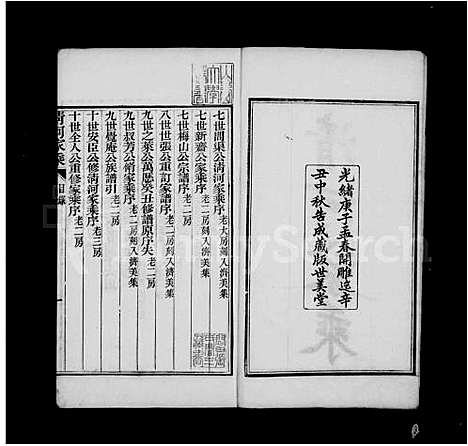 光緒庚子孟春開雕迄辛
丑中秋告成藏版世美堂
七世問渠公清河家乘序老大房刻入濟美集
七世新齋公家乘序老二房刻入濟美集
七世梅山公宗譜序老二房
八世世張公重訂家譜序老二房
九世之萊公萬歷癸丑修譜原序失老二房
九世叔芳公淸家乘序老二房刻入濟美集
九世覺庵公族譜引老二房
十世安臣公修淸河家乘序老三房
十世全人公重修家乘序老二房
清河家乘
目錄
一